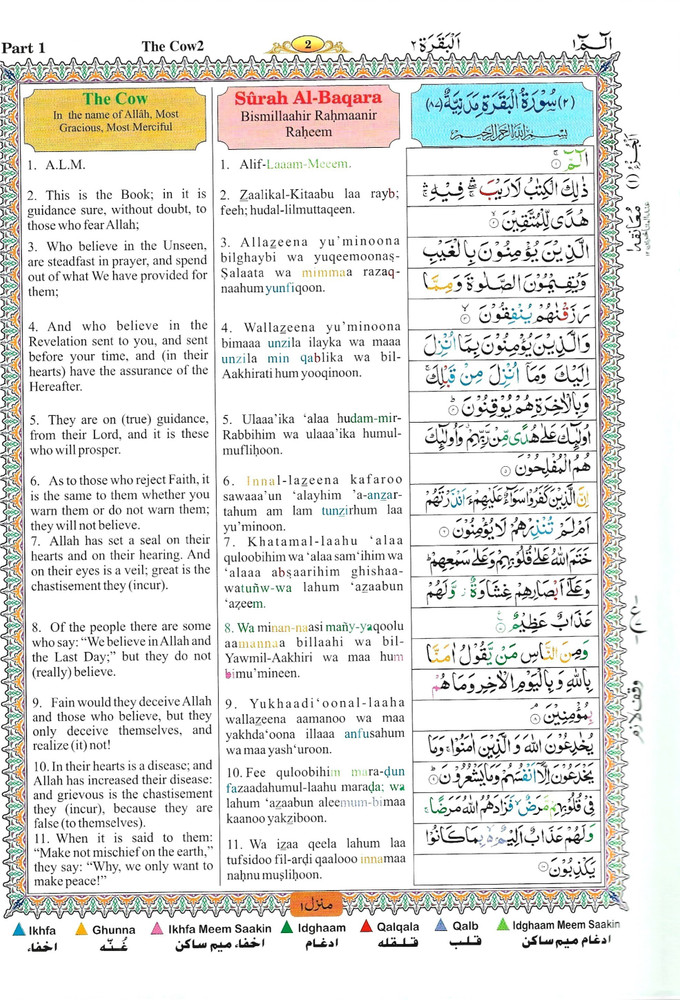 Part 1
The Cow2
2
اَلْبَقَرَة ٢
الٓمّٓ ١
The Cow
In the name of Allâh, Most
Gracious, Most Merciful
1. A.L.M.
2. This is the Book; in it is
guidance sure, without doubt, to
those who fear Allah;
3. Who believe in the Unseen,
are steadfast in prayer, and spend
out of what We have provided for
them;
4. And who believe in the
Revelation sent to you, and sent
before your time, and (in their
hearts) have the assurance of the
Hereafter.
5. They are on (true) guidance,
from their Lord, and it is these
who will prosper.
6. As to those who reject Faith, it
is the same to them whether you
warn them or do not warn them;
they will not believe.
7. Allah has set a seal on their
hearts and on their hearing. And
on their eyes is a veil; great is the
chastisement they (incur).
8. Of the people there are some
who say: “We believe in Allah and
the Last Day;” but they do not
(really) believe.
9. Fain would they deceive Allah
and those who believe, but they
only deceive themselves, and
realize (it) not!
10. In their hearts is a disease; and
Allah has increased their disease:
and grievous is the chastisement
they (incur), because they are
false (to themselves).
11. When it is said to them:
“Make not mischief on the earth,”
they say: “Why, we only want to
make peace!”
Sûrah Al-Baqara
Bismillaahir Raḥmaanir
Raḥeem
1. Alif-Laaam-Meeem.
2. Z̲aalikal-Kitaabu laa rayb;
feeh; hudal-lilmuttaqeen.
3. Allaz̲eena yu’minoona
bilghaybi wa yuqeemoonaṣ-
Ṣalaata wa mimmaa razaq-
naahum yunfiqoon.
4. Wallaz̲eena yu’minoona
bimaaa unzila ilayka wa maaa
unzila min qablika wa bil-
Aakhirati hum yooqinoon.
5. Ulaaa’ika ‘alaa hudam-mir-
Rabbihim wa ulaaa’ika humul-
mufliḥoon.
6. Innal-laz̲eena kafaroo
sawaaa’un ‘alayhim ’a-anz̲ar-
tahum am lam tunz̲irhum laa
yu’minoon.
7. Khatamal-laahu ‘alaa
quloobihim wa ‘alaa sam‘ihim wa
‘alaaa abṣaarihim ghishaa-
watuñw-wa lahum ‘az̲aabun
‘aẓeem.
8. Wa minan-naasi mañy-yaqoolu
aamannaa billaahi wa bil-
Yawmil-Aakhiri wa maa hum
bimu’mineen.
9. Yukhaadi‘oonal-laaha
wallaz̲eena aamanoo wa maa
yakhda‘oona illaaa anfusahum
wa maa yash‘uroon.
10. Fee quloobihim maraḍun
fazaadahumul-laahu maraḍa; wa
lahum ‘az̲aabun aleemum-bimaa
kaanoo yakz̲iboon.
11. Wa iz̲aa qeela lahum laa
tufsidoo fil-arḍi qaalooo innamaa
naḥnu muṣliḥoon.
(٢) سُوْرَةُ الْبَقَرَةِ مَدَنِيَّةٌ (٨٧)
بِسْمِ اللهِ الرَّحْمٰنِ الرَّحِيْمِ
الٓمّٓ ۚ ١
ذٰلِكَ الْكِتٰبُ لَا رَيْبَ ۛ فِيْهِ ۛ
هُدًى لِّلْمُتَّقِيْنَ ٢
الَّذِيْنَ يُؤْمِنُوْنَ بِالْغَيْبِ
وَيُقِيْمُوْنَ الصَّلٰوةَ وَمِمَّا
رَزَقْنٰهُمْ يُنْفِقُوْنَ ٣
وَالَّذِيْنَ يُؤْمِنُوْنَ بِمَآ اُنْزِلَ
اِلَيْكَ وَمَآ اُنْزِلَ مِنْ قَبْلِكَ ۚ
وَبِالْاٰخِرَةِ هُمْ يُوْقِنُوْنَ ٤
اُولٰٓئِكَ عَلٰى هُدًى مِّنْ رَّبِّهِمْ وَاُولٰٓئِكَ
هُمُ الْمُفْلِحُوْنَ ٥
اِنَّ الَّذِيْنَ كَفَرُوْا سَوَآءٌ عَلَيْهِمْ ءَاَنْذَرْتَهُمْ
اَمْ لَمْ تُنْذِرْهُمْ لَا يُؤْمِنُوْنَ ٦
خَتَمَ اللهُ عَلٰى قُلُوْبِهِمْ وَعَلٰى سَمْعِهِمْ ؕ
وَعَلٰٓى اَبْصَارِهِمْ غِشَاوَةٌ ۫ وَّلَهُمْ
عَذَابٌ عَظِيْمٌ ٧
وَمِنَ النَّاسِ مَنْ يَّقُوْلُ اٰمَنَّا
بِاللهِ وَبِالْيَوْمِ الْاٰخِرِ وَمَا هُمْ
بِمُؤْمِنِيْنَ ٨
يُخٰدِعُوْنَ اللهَ وَالَّذِيْنَ اٰمَنُوْا ۚ وَمَا
يَخْدَعُوْنَ اِلَّآ اَنْفُسَهُمْ وَمَا يَشْعُرُوْنَ ٩
فِيْ قُلُوْبِهِمْ مَّرَضٌ ۙ فَزَادَهُمُ اللهُ مَرَضًا ۚ
وَلَهُمْ عَذَابٌ اَلِيْمٌ ۢ بِمَا كَانُوْا
يَكْذِبُوْنَ ١٠
اَلْجُزْءُ (١)
معانقه ١
ع
وقف لازم
منزل ١
Ikhfa
Ghunna
Ikhfa Meem Saakin
Idghaam
Qalqala
Qalb
Idghaam Meem Saakin
اخفاء
غُنّه
اخفاء ميم ساكن
ادغام
قلقله
قلب
ادغام ميم ساكن